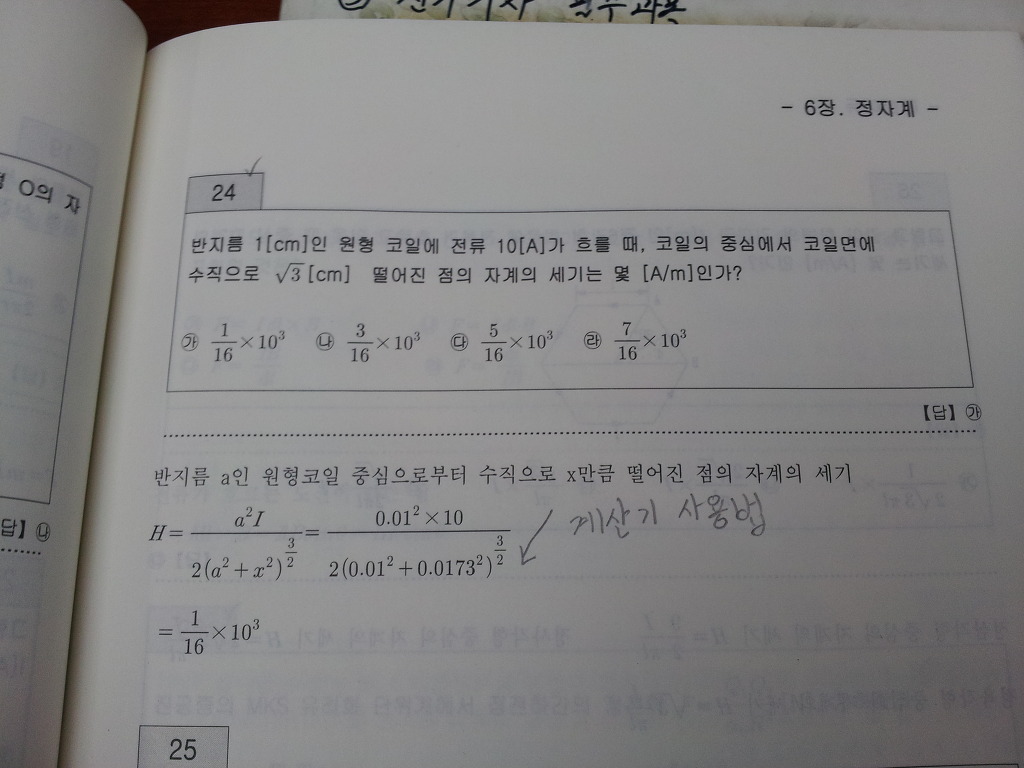 ② 전기기사 필수과목
- 6장. 정자계 -
형 O의 자
24
반지름 1[cm]인 원형 코일에 전류 10[A]가 흐를 때, 코일의 중심에서 코일면에
수직으로 √3[cm] 떨어진 점의 자계의 세기는 몇 [A/m]인가?
㉮ 1/16×10³ ㉯ 3/16×10³ ㉰ 5/16×10³ ㉱ 7/16×10³
【답】㉮
반지름 a인 원형코일 중심으로부터 수직으로 x만큼 떨어진 점의 자계의 세기
답】㉯
H = a²I / 2(a²+x²)^(3/2) = 0.01²×10 / 2(0.01²+0.0173²)^(3/2) 계산기 사용법
= 1/16×10³
25